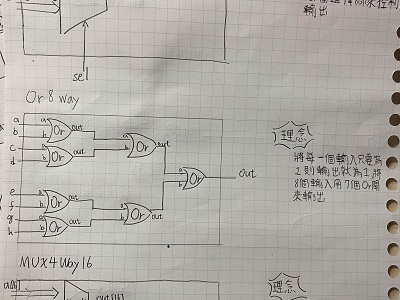 輸出
sel
Or 8 way
理念
a
b
c
d
e
f
g
h
a
b
Or
out
a
b
Or
out
a
b
Or
out
a
b
Or
out
a
b
Or
out
a
b
Or
out
a
b
Or
out
將每一個輸入只要為
1則輸出就為1,將
8個輸入用7個Or閘
來輸出
MUX4Way16
理念